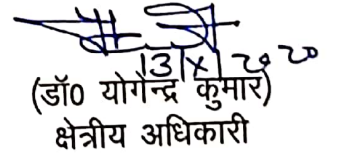 13/X/2020
(डॉ0 योगेन्द्र कुमार)
क्षेत्रीय अधिकारी